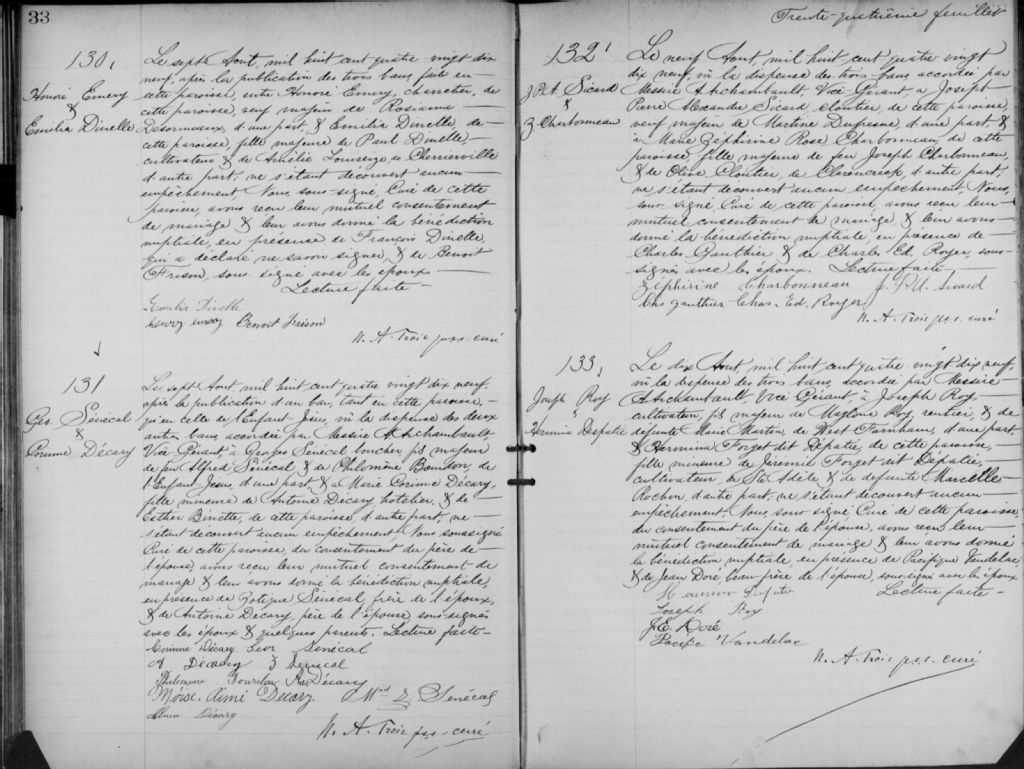 33
130,
Honoré Emery
&
Emilia Dinelle
Le sept Aout, mil huit cent quatre vingt dix
neuf, après la publication des trois bans, faite en
cette paroisse, entre Honoré Emery, charretier, de
cette paroisse, veuf majeur de Rosianne
Desormeaux, d'une part, & Emilia Dinelle, de
cette paroisse, fille majeure de Paul Dinelle,
cultivateur & de Amélie Louiseize de Cherrierville
d'autre part, ne s'étant decouvert aucun
empêchement, Nous, sous-signé, Curé de cette
paroisse, avons recu leur mutuel consentement
de mariage & leur avons donné la bénédiction
nuptiale, en presence de François Dinelle,
qui a declaré ne savoir signer, & de Benoit
Frison, sous signé avec les époux
Lecture faite
Emilia Dinelle
henry emery Benoit Frison
N. A. Troie p.s.s. curé
131
Geo. Sénécal
&
Corinne Décary
Le sept Aout mil huit cent quatre vingt dix neuf,
après la publication d'un ban, tant en cette paroisse,
qu'en celle de l'Enfant Jésus, vu la dispense des deux
autres bans, accordée par Messire A. Archambault,
Vice Gérant, à Georges Sénécal boucher, fils majeur
de feu Alfred Sénécal, & de Philomène Bourdon, de
l'Enfant Jesus, d'une part & à Marie Corinne Décary,
fille mineure de Antoine Décary hotelier, & de
Esther Binette, de cette paroisse, d'autre part, ne
s'étant decouvert aucun empêchement, Nous soussigné
Curé de cette paroisse, du consentement du père de
l'épouse, avons recu leur mutuel consentement de
mariage & leur avons donné la bénédiction nuptiale
en presence de Zotique Sénécal frère de l'époux,
& de Antoine Decary père de l'épouse sous-signés
avec les époux & quelques parents. Lecture faite
Corinne Décary Geor Senécal
A Décary Z Senécal
Philomene Bourdon Décary
Moïse. Aimé Decary. Mad Z Senécal
Alma Décary
N. A. Troie p.s.s. curé
Trente-quatrième feuillet
132
J P. A. Sicard
&
Z Charbonneau
Le neuf Aout, mil huit cent quatre vingt
dix neuf, vu la dispense des trois bans accordée par
Messire Archambault, Vice Gérant, à Joseph
Pierre Alexandre Sicard cloutier de cette paroisse,
veuf, majeur de Martine Dufresne, d'une part &
à Marie Zéphirine Rose Charbonneau, de cette
paroisse, fille majeure de feu Joseph Charbonneau,
& de Olive Cloutier, de Clarenceville, d'autre part,
ne s'étant decouvert aucun empêchement, Nous,
sous-signé Curé de cette paroisse, avons recu leur
mutuel consentement de mariage & leur avons
donné la bénédiction nuptiale, en presence de
Charles Gauthier & de Charles Ed. Roger, sous-
signés avec les époux. Lecture faite
Zéphirine Charbonneau J. P. A. Sicard
Chs gauthier Chas. Ed. Roger
N. A. Troie p.s.s. curé
133,
Joseph Roy
&
Hermine Depatie
Le dix Aout, mil huit cent quatre vingt dix neuf,
vu la dispense des trois bans, accordée par Messire
Archambault, Vice Gérant, à Joseph Roy
cultivateur, fils majeur de Magloire Roy, rentier, & de
defunte Marie Martin, de West Farnham, d'une part,
& Hermina Forget dit Dépatie, de cette paroisse,
fille mineure de Jérémie Forget dit Dépatie,
cultivateur, de Ste Adèle & de defunte Marcelle
Rochon, d'autre part, ne s'étant decouvert aucun
empêchement, Nous, sous signé Curé de cette paroisse,
du consentement du père de l'épouse, avons recu leur
mutuel consentement de mariage & leur avons donné
la bénédiction nuptiale, en presence de Pacifique Vandelac
& de Jean Doré beau-frère de l'épouse, sous-signés avec les époux
Lecture faite
Joseph Roy
J. E. Doré
Pacific Vandelac
N. A. Troie p.s.s. curé